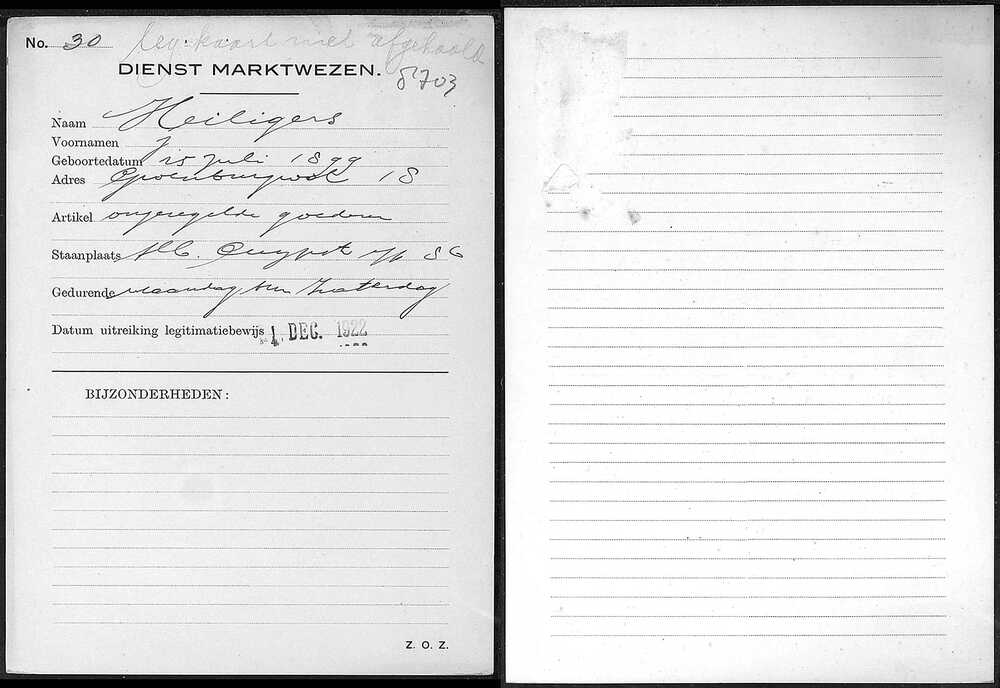 No. 30 Leg. kaart niet afgehaald
DIENST MARKTWEZEN.
5703
Naam Heiligers
Voornamen J
Geboortedatum 15 Juli 1899
Adres Groenburgwal 18
Artikel ongeregelde goederen
Staanplaats Alb. Cuypst 86
Gedurende maandag t/m Zaterdag
Datum uitreiking legitimatiebewijs 1 DEC. 1922
BIJZONDERHEDEN:
Z. O. Z.